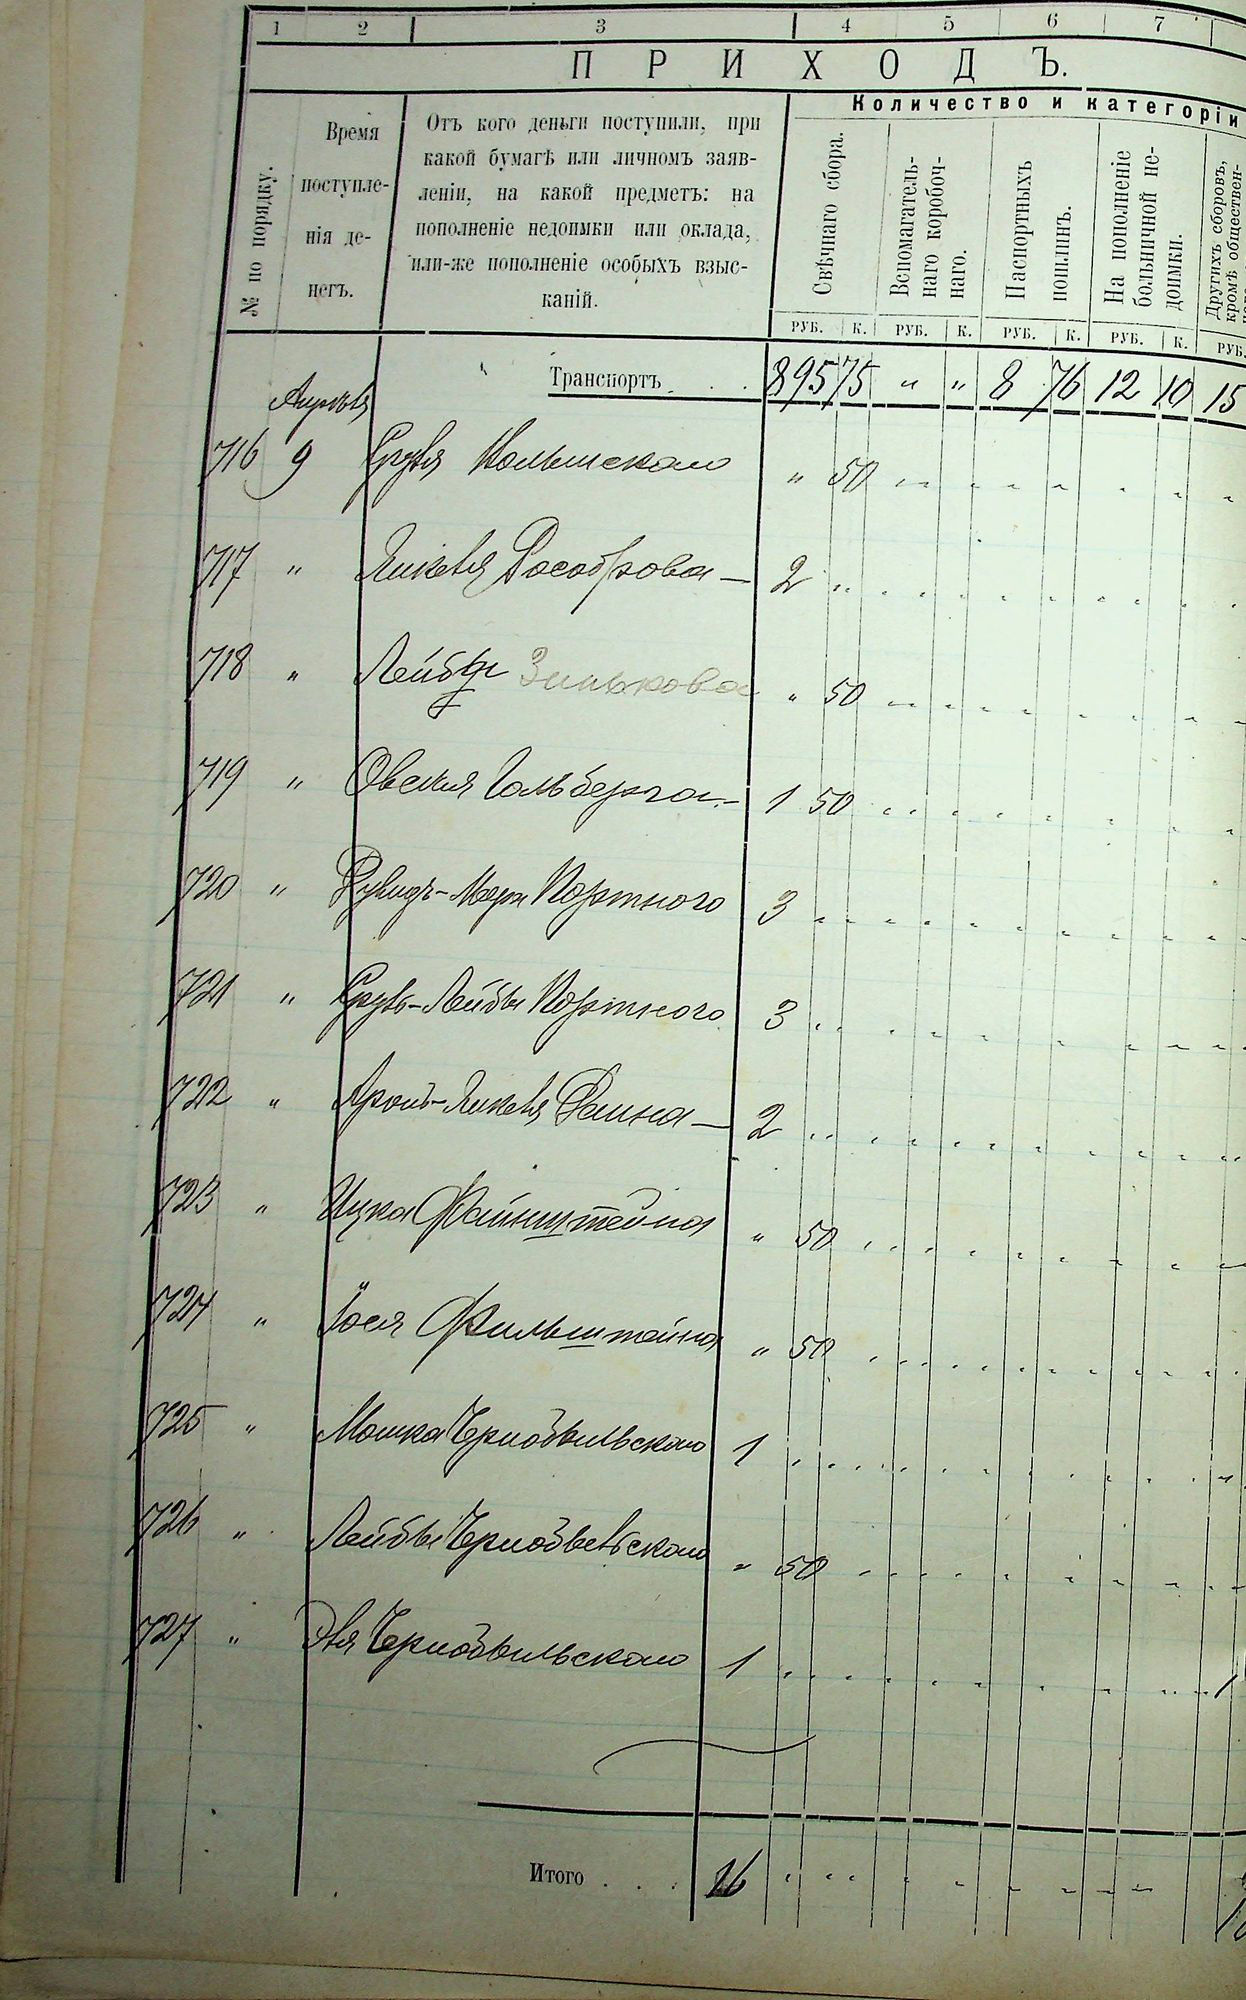 1 2 3 4 5 6 7
ПРИХОДЪ.
Количество и категоріи
№ по порядку.
Время
поступле-
нія де-
негъ.
Отъ кого деньги поступили, при
какой бумагѣ или личномъ заяв-
леніи, на какой предметъ: на
пополненіе недоимки или оклада,
или-же пополненіе особыхъ взыс-
каній.
Свѣчнаго сбора.
Вспомагатель-
наго коробоч-
наго.
Паспортныхъ
пошлинъ.
На пополненіе
больничной не-
доимки.
Другихъ сборовъ,
кромѣ обществен-
РУБ. К. РУБ. К. РУБ. К. РУБ. К. РУБ.
Транспортъ . . 895 75 " " 8 76 12 10 15
Апрѣля
716 9 Сруля " 50
717 " 2 "
718 " Лейбы Зинькова " 50
719 " Овсея Гольберга 1 50
720 " Портного 3
721 " Сруль-Лейбы Портного 3
722 " Аронъ- 2
723 " Ицка Файнштейна " 50
724 " Іося Фильштейна " 50
725 " Мошка Чернобыльскаго 1
726 " Лейбы Чернобыльскаго " 50
727 " Чернобыльскаго 1 1
Итого . . . 16